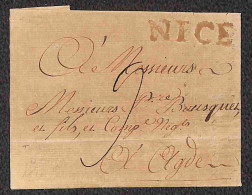 NICE
À Messieurs
Messieurs P.re Bousquet
et fils et Comp.e Neg.ts
À Agde